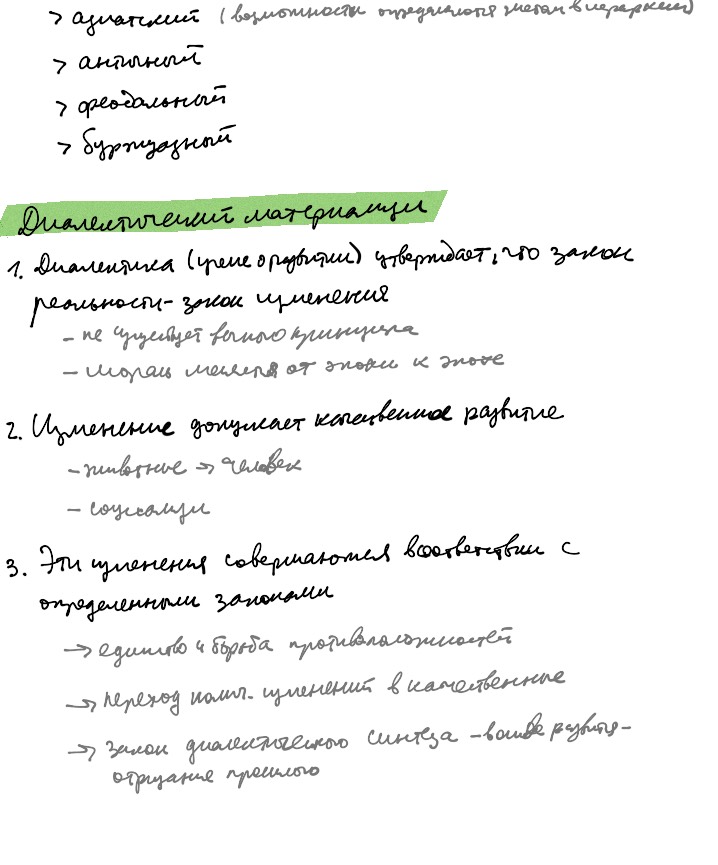 > азиатский (возможности определяются местом в иерархии)
> античный
> феодальный
> буржуазный
Диалектический материализм
1. Диалектика (учение о развитии) утверждает, что закон
реальности - закон изменения
- не существует вечного принципа
- мораль меняется от эпохи к эпохе
2. Изменение допускает качественное развитие
- животное → человек
- социализм
3. Эти изменения совершаются в соответствии с
определенными законами
→ единство и борьба противоположностей
→ переход колич. изменений в качественные
→ закон диалектического синтеза - развития -
отрицание прошлого